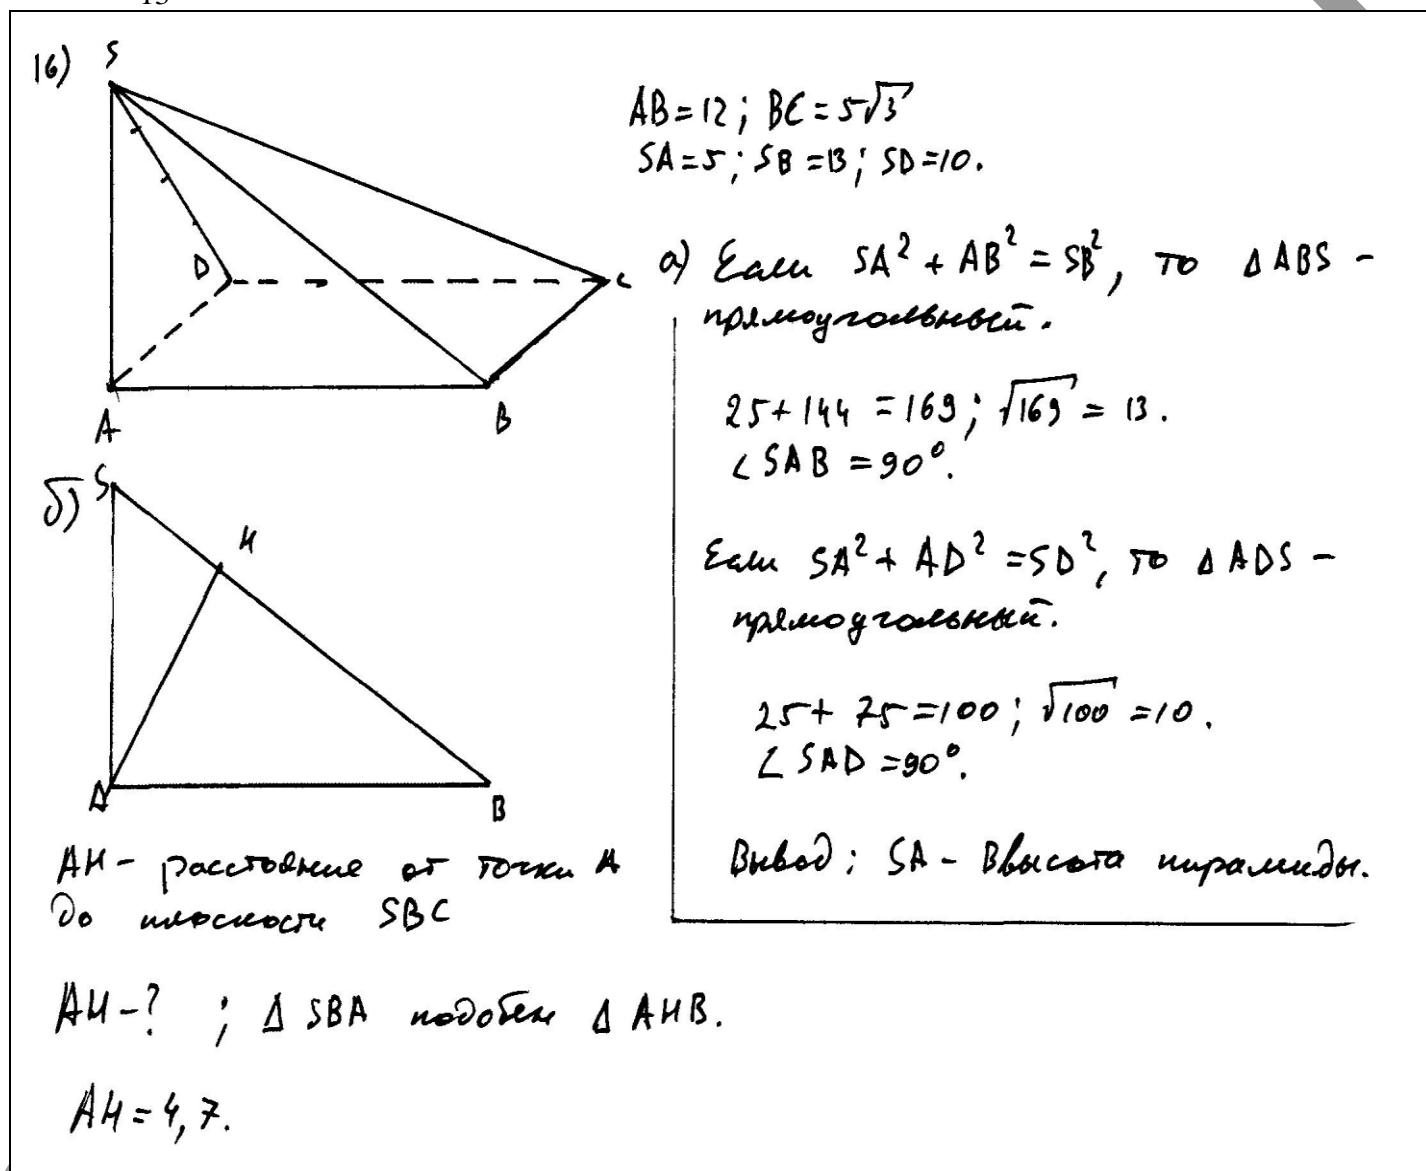 16)
S
D
C
A
B
AB=12; BC=5√3
SA=5; SB=13; SD=10.
а) Если SA² + AB² = SB², то Δ ABS –
прямоугольный.
25+144 = 169; √169 = 13.
∠SAB = 90°.
Если SA² + AD² = SD², то Δ ADS –
прямоугольный.
25+ 75=100; √100 =10.
∠ SAD =90°.
Вывод: SA – Ввысота пирамиды.
б)
S
H
A
B
AH – расстояние от точки A
до плоскости SBC
AH–? ; Δ SBA подобен Δ AHB.
AH=4,7.